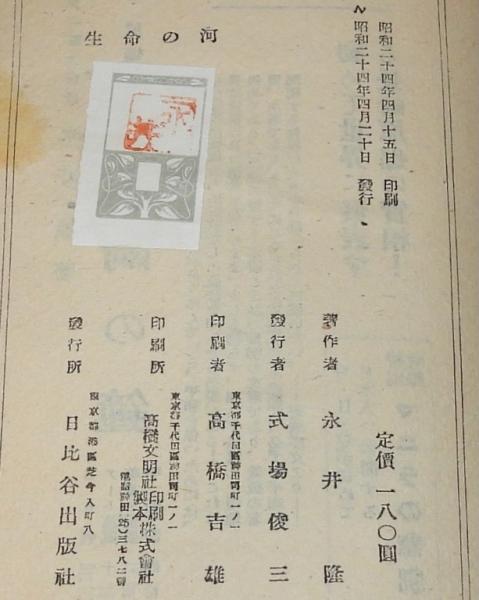 昭和二十四年四月十五日 印刷
昭和二十四年四月二十日 發行
生命の河
定價 一八〇圓
著作者 永井 隆
發行者 式場俊三
東京都千代田區神田錦町一ノ一
印刷者 高橋吉雄
東京都千代田區神田錦町一ノ一
印刷所 高橋文明社印刷製本株式會社
電話神田(25)三七八二番
東京都港區芝今入町八
發行所 日比谷出版社